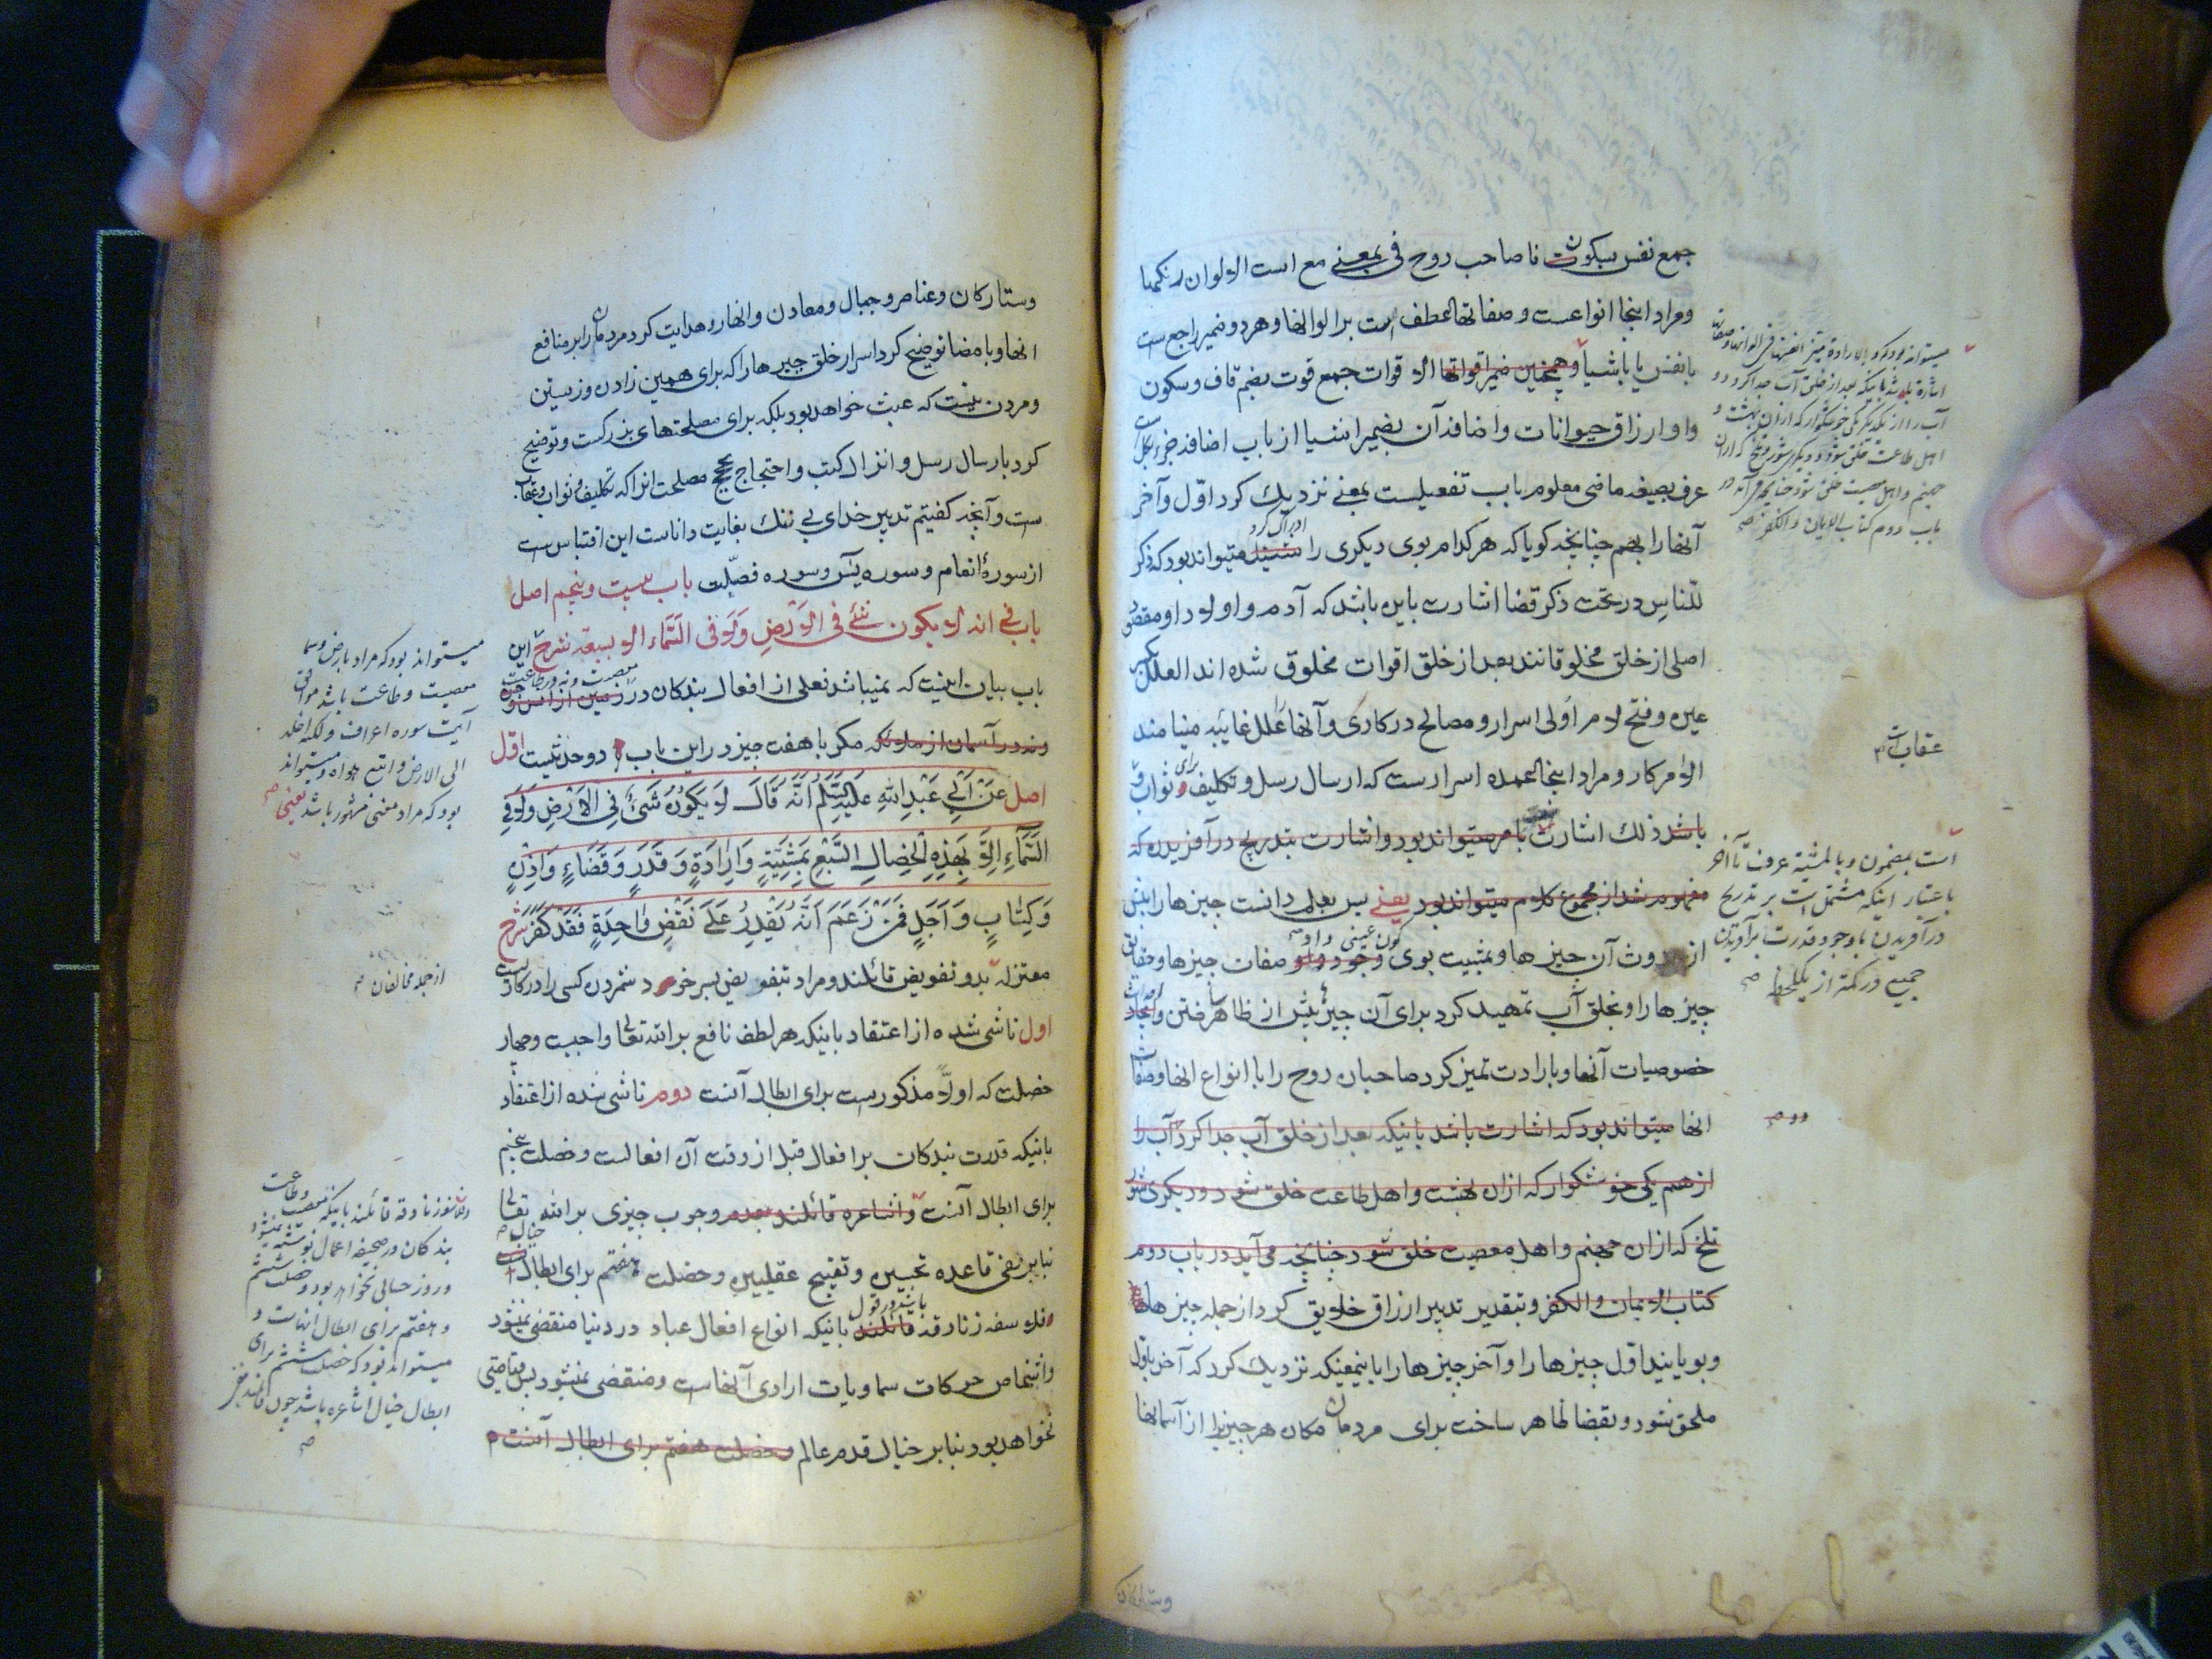 جمع نفس بسکون فا صاحب روح فی بمعنی مع است الالوان رنکها
ومراد اینجا انواعست وصفاتها عطف است بر الوانها وهر دو ضمیر راجع ست
بانفس یا باشیا وهمچنین ضمیر اقواتها الاقوات جمع قوت بضم قاف وسکون
واو ارزاق حیوانات واضافه آن بضمیر اشیا از باب اضافه جزء بکل ست
عرف بصیغه ماضی معلوم باب تفعیلست بمعنی نزدیک کرد اوّل وآخر
آنها را بهم چنانچه کویا که هر کدام بوی دیکری را شنید ادراک کرد میتواند بود که ذکر
للنّاسِ در تحت ذکر قضا اشارت باین باشد که آدم واولاد او مقصود
اصلی از خلق مخلوقانند بعد از خلق اقوات مخلوق شده اند العلل بکسر
عین وفتح لام اولی اسرار ومصالح در کاری وآنها علل غائیه مینامند
الامر کار ومراد اینجا عمده اسرارست که ارسال رسل وتکلیف برای ثواب و
عقاب است
باشد ذلک اشارت بامر میتواند بود واشارت بتدریج در آفریدن که
مفهوم شد از مجموع کلام میتواند بود یعنی پس بعلم دانست چیزها را پیش
از حدوث آن چیزها وبمشیت بوی کون عینی داد وجود داد صفات چیزها وحقایق
چیزها را وبخلق آب تمهید کرد برای آن چیزها پیش از ظاهر ساختن وایجاد
خصوصیات آنها وبارادت تمیز کرد صاحبان روح را با انواع انها وصفات
انها میتواند بود که اشارت باشد باینکه بعد از خلق آب جدا کرد آب را
از هم یکی خوشکوار که ازان بهشت واهل طاعت خلق شود ودیکری شور
تلخ که ازان جهنم واهل معصیت خلق شود چنانچه می آید در باب دوم
کتاب الایمان والکفر وبتقدیر تدبیر ارزاق خلایق کرد از جمله چیزها
وبویانید اوّل چیزها را وآخر چیزها را باینمعنیکه نزدیک کرد که آخر باوّل
ملحق شود وبقضا ظاهر ساخت برای مردمان مکان هر چیز را از آسمانها
وستارکان
است بمضمون وبالمشیة عرف تا آخر
باعتبار اینکه مشتمل است بر تدریج
در آفریدن با وجود قدرت بر آوردن
جمیع در کمتر از یکلحظه صح
باب دوم کتاب الایمان والکفر صح
وستارکان وعناصر وجبال ومعادن وانهار وهدایت کرد مردمان را بر منافع
انها وبامضا توضیح کرد اسرار خلق چیزها را که برای همین زادن وزیستن
ومردن نیست که عبث خواهد بود بلکه برای مصلحتهای بزرکست وتوضیح
کرد بارسال رسل وانزال کتب واحتجاج حجج مصلحت انرا که تکلیف وثواب وعقاب
ست وآنچه کفتیم تدبیر خدای بی ننک بغایت داناست این اقتباس ست
از سورهٔ انعام وسوره یس وسوره فصّلت باب بیست وپنجم اصل
باب فی انه لا یکون شئ فی الارضِ ولا فی السَّماء الا بسبعة شرح این
باب بیان اینست که نمیباشد فعلی از افعال بندکان در معصیت ونه در طاعت زمین از انس وجن
ونه در آسمان از ملائکه مکر با هفت چیز در این باب دو حدیثست اوّل
اصل عَنْ اَبِی عَبْدِ اللهِ عَلَیْهِ السَّلَم اَنَّهُ قَالَ لَا یَکُونُ شَیْءٌ فِی الاَرْضِ وَلَا فِی
السَّمَاءِ اِلَّا بِهَذِهِ الْخِصَالِ السَّبْعِ بِمَشِیَّةٍ وَاِرَادَةٍ وَقَدَرٍ وَقَضَاءٍ وَاِذْنٍ
وَکِتَابٍ وَاَجَلٍ فَمَنْ زَعَمَ اَنَّهُ یَقْدِرُ عَلَی نَقْضِ وَاحِدَةٍ فَقَدْ کَفَرَ شرح
معتزله بدو تفویض قائلند ومراد بتفویض بسر خود شمردن کسی را در کاری ست
اول ناشی شده از اعتقاد باینکه هر لطف نافع بر الله تعالی واجبست وچهار
خصلت که اولا مذکورست برای ابطال آنست دوم ناشی شده از اعتقاد
باینکه قدرت بندکان بر افعال قبل از وقت آن افعالست وخصلت پنجم
برای ابطال آنست واشاعره قائلند بعدم وجوب چیزی بر الله تعالی
بنابر نفی قاعده تحسین وتقبیح عقلیین وخصلت هفتم برای ابطال خیال
فلاسفه زنادقه قائلند باشد در قول باینکه انواع افعال عباد در دنیا منقضی نمیشود
واشخاص حرکات سماویات ارادی آنهاست ومنقضی نمیشود پس قیامتی
نخواهد بود بنابر خیال قدم عالم وخصلت هفتم برای ابطال آنست
میتواند بود که مراد بارض وسما
معصیت وطاعت باشد موافق
آیت سوره اعراف ولکنه اخلد
الی الارض واتبع هواه ومیتواند
بود که مراد معنی مشهور باشد یعنی صح
از جمله مخالفان صح
بندکان در صحیفه اعمال نوشته نمیشود
وروز حسابی نخواهد بود وخصلت ششم
وهفتم برای ابطال اینهاست و
میتواند بود که خصلت ششم برای
ابطال خیال اشاعره باشد چون